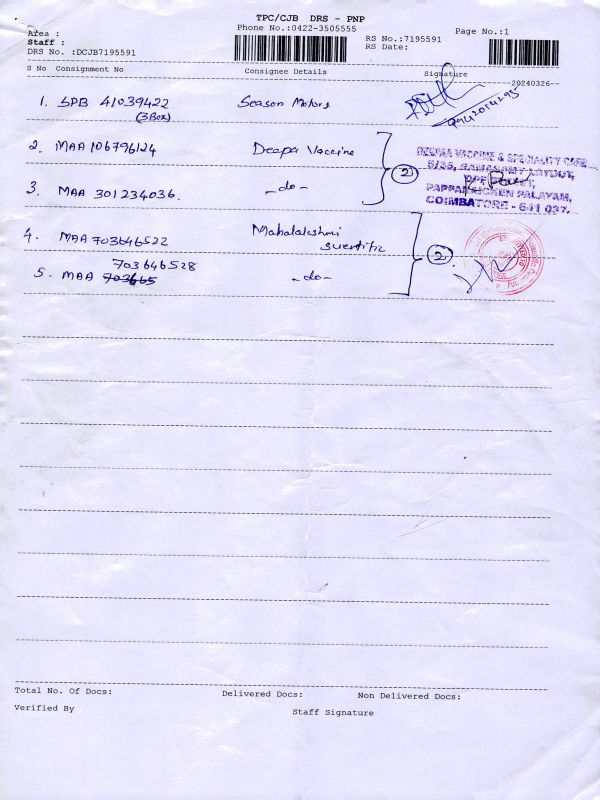 TPC/CJB DRS - PNP
Phone No.:0422-3505555
Page No.:1
Area :
Staff :
RS No.:7195591
RS Date:
DRS No. :DCJB7195591
S No Consignment No Consignee Details Signature
20240326
1. SPB 41039422 Season Motors
(3Box)
2. MAA 106796124 Deepa Vaccine
2
DEEPAA VACCINE & SPECIALITY CARE
5/35, RAMASAMY LAYOUT,
PAPPANAICKEN PALAYAM,
COIMBATORE - 641 037.
3. MAA 301234036. -do-
4. MAA 703646522 Mahalakshmi
scientific
2
703646528
5. MAA 703665 -do-
Total No. Of Docs: Delivered Docs: Non Delivered Docs:
Verified By Staff Signature